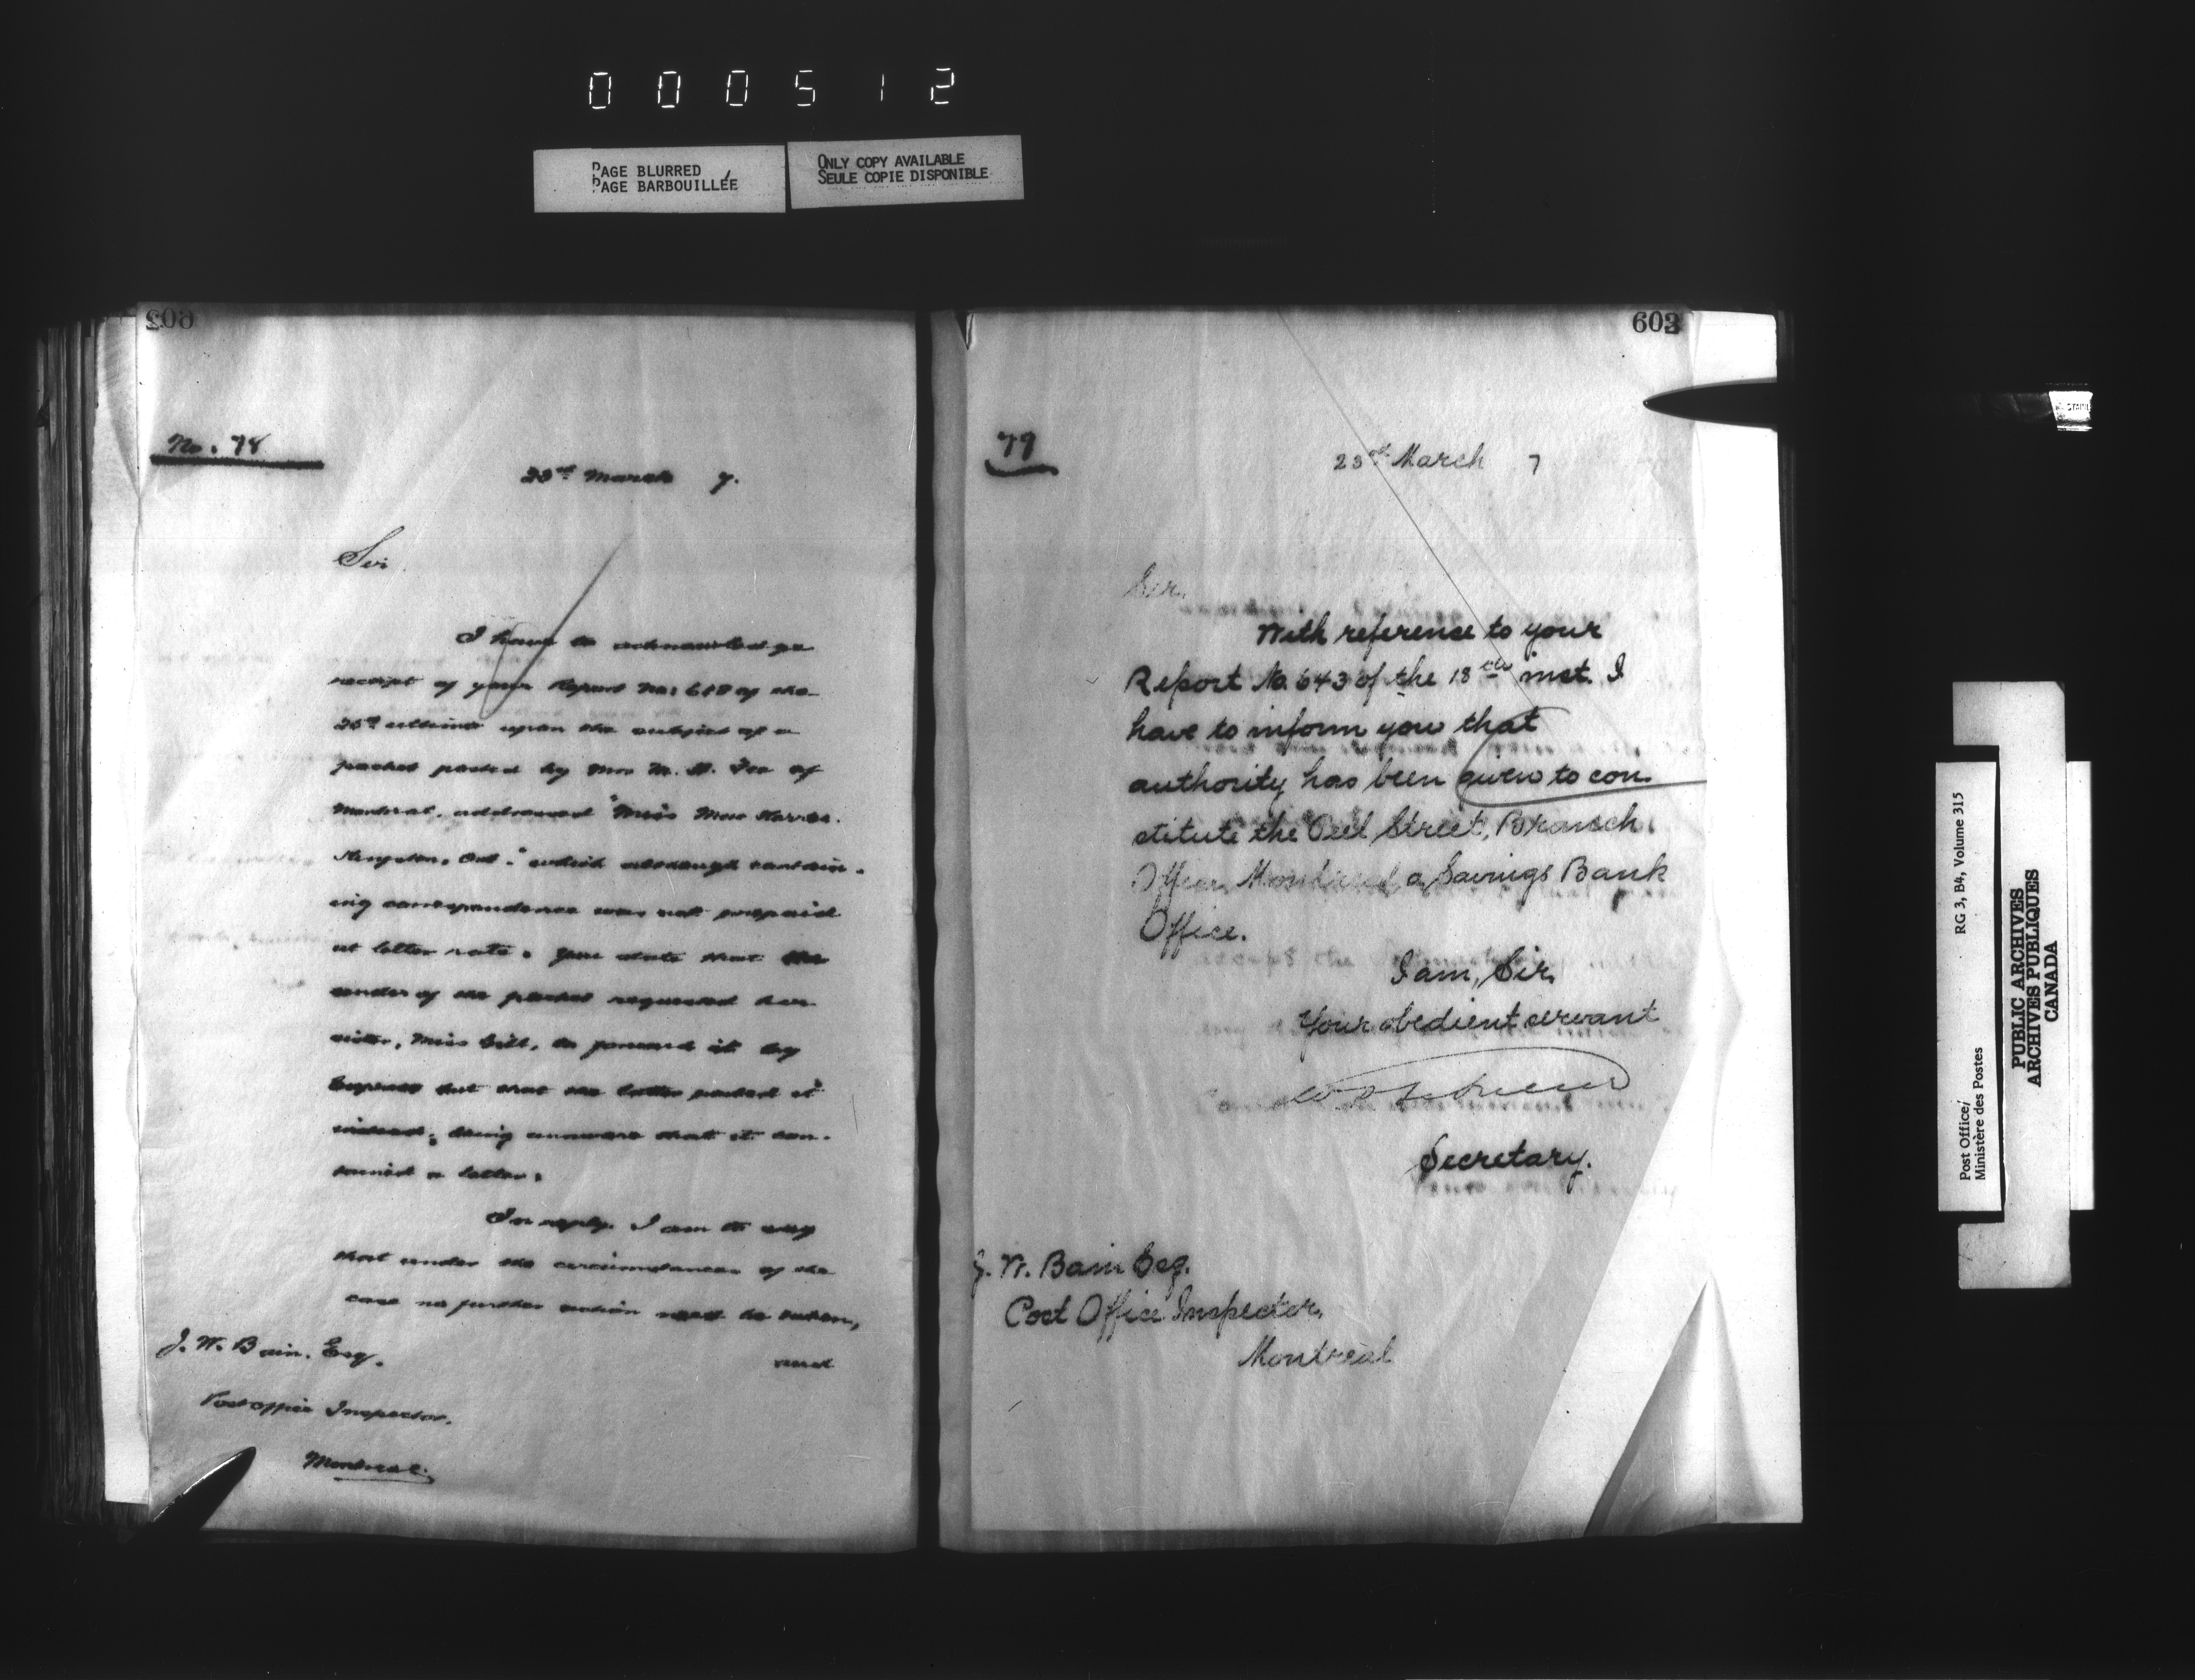 000512
PAGE BLURRED
PAGE BARBOUILLÉE
ONLY COPY AVAILABLE
SEULE COPIE DISPONIBLE
602
No. 78
23rd March 7.
Sir
I have to acknowledge
receipt of your Report No. 618 of the
ultimo upon the subject of a
packet posted by Mrs M. H. Fee of
Montreal, addressed "Miss
Kingston, Ont." which although contain-
ing correspondence was not prepaid
at letter rate. You state that the
sender of the packet requested her
sister, Miss Gill, to forward it by
Express but that the latter posted it
instead, being unaware that it con-
tained a letter.
In reply, I am to say
that under the circumstances of the
case no further action need be taken,
and
J. W. Bain, Esq.
Post office Inspector,
Montreal.
603
79
23rd March 7
Sir,
With reference to your
Report No. 643 of the 18th inst. I
have to inform you that
authority has been given to con-
stitute the Peel Street, Branch
Office, Montreal a Savings Bank
Office.
I am, Sir,
Your obedient servant
Secretary.
J. W. Bain Esq.
Post Office Inspector,
Montreal
Post Office/ RG 3, B4, Volume 315
Ministère des Postes
PUBLIC ARCHIVES
ARCHIVES PUBLIQUES
CANADA